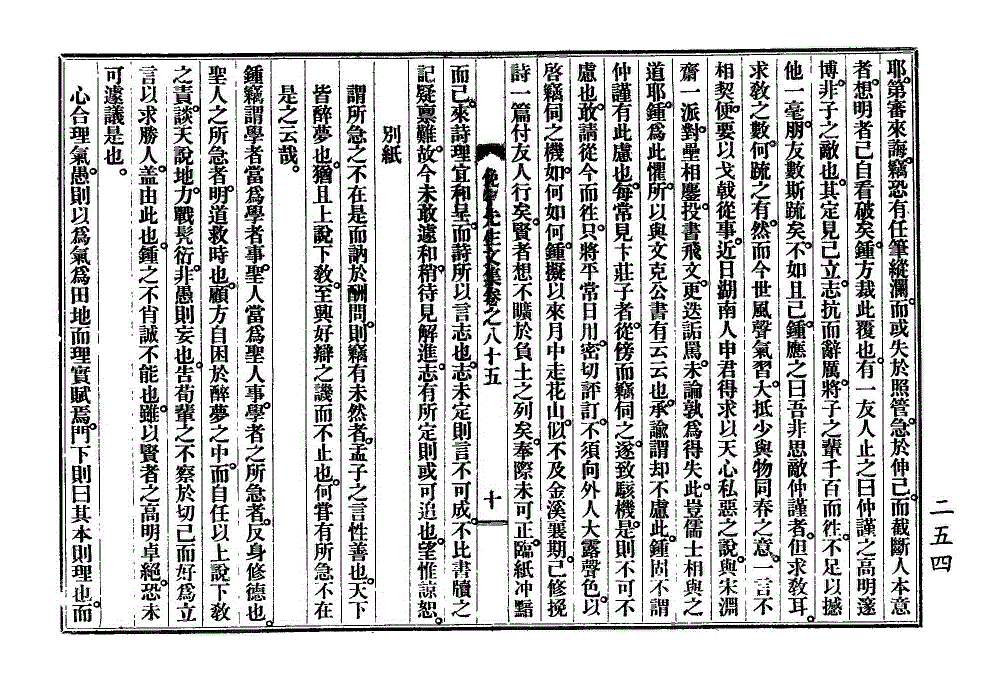 耶。第審來誨。竊恐有任筆縱瀾。而或失於照管。急於伸己。而截斷人本意
者。想明者已自看破矣。鍾方裁此覆也。有一友人止之曰仲謹之高明邃
博。非子之敵也。其定見已立。志抗而辭厲。將子之輩千百而徃。不足以撼
他一毫。朋友數斯䟽矣。不如且已。鍾應之曰吾非思敵仲謹者。但求教耳。
求教之數。何䟽之有。然而今世風聲氣習。大抵少與物同春之意。一言不
相契。便要以戈戟從事。近日湖南人申君得求以天心私惡之說。與宋淵
齋一派。對壘相鏖。投書飛文。更迭詬罵。未論孰爲得失。此豈儒士相與之
道耶。鍾爲此懼。所以與文克公書有云云也。承諭謂却不慮此。鍾固不謂
仲謹有此慮也。每常見卞莊子者。從傍而竊伺之。遂致駭機。是則不可不
慮也。敢請從今而徃。只將平常日用。密切評訂。不須向外人大露聲色。以
啓竊伺之機。如何如何。鍾擬以來月中走花山。似不及金溪襄期。已修挽
詩一篇付友人行矣。賢者想不曠於負土之列矣。奉際未可正。臨紙冲黯
俛宇先生文集卷之八十五　十
而已。來詩理宜和呈。而詩所以言志也。志未定則言不可成。不比書牘之
記疑稟難。故今未敢遽和。稍待見解進。志有所定則或可追也。望惟諒恕。
別紙
謂所急之不在是而訥於酬問。則竊有未然者。孟子之言性善也。天下
皆醉夢也。猶且上說下教。至興好辯之譏而不止也。何嘗有所急不在
是之云哉。
鍾竊謂學者當爲學者事。聖人當爲聖人事。學者之所急者。反身修德也。
聖人之所急者。明道救時也。顧方自困於醉夢之中。而自任以上說下教
之責。談天說地。力戰髡衍。非愚則妄也。告荀輩之不察於切己而好爲立
言以求勝人。盖由此也。鍾之不肖誠不能也。雖以賢者之高明卓絕。恐未
可遽議是也。
心合理氣。愚則以爲氣爲田地而理實賦焉。門下則曰其本則理也。而
二五四